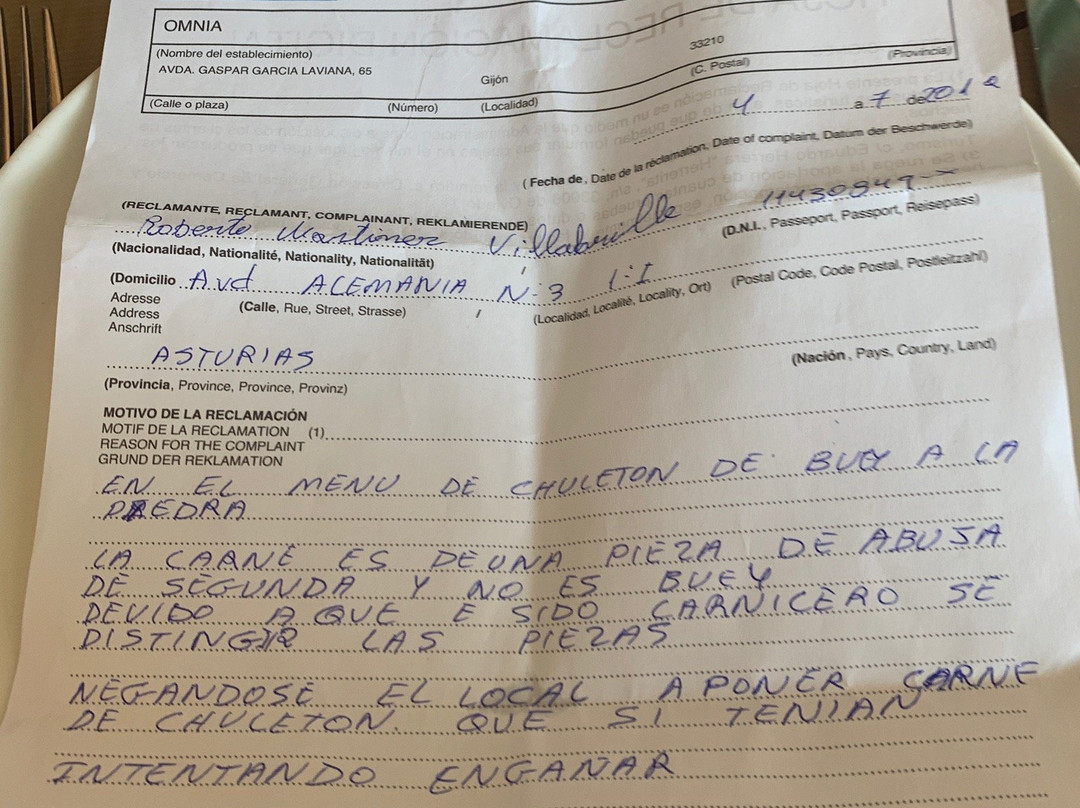 OMNIA
(Nombre del establecimiento)
AVDA. GASPAR GARCIA LAVIANA, 65 Gijón 33210
(Calle o plaza) (Número) (Localidad) (C. Postal) (Provincia)
4 a 7 de 2019
(Fecha de, Date de la réclamation, Date of complaint, Datum der Beschwerde)
(RECLAMANTE, RECLAMANT, COMPLAINANT, REKLAMIERENDE)
Roberto Martinez Villabrille 11430849-X
(Nacionalidad, Nationalité, Nationality, Nationalität) (D.N.I., Passeport, Passport, Reisepass)
(Domicilio Avd ALEMANIA N-3 1-I
Adresse (Calle, Rue, Street, Strasse) (Localidad, Localité, Locality, Ort) (Postal Code, Code Postal, Postleitzahl)
Address
Anschrift
ASTURIAS
(Provincia, Province, Province, Provinz) (Nación, Pays, Country, Land)
MOTIVO DE LA RECLAMACIÓN
MOTIF DE LA RECLAMATION (1)
REASON FOR THE COMPLAINT
GRUND DER REKLAMATION
EN EL MENU DE CHULETON DE BUEY A LA
PIEDRA
LA CARNE ES DE UNA PIEZA DE ABUJA
DE SEGUNDA Y NO ES BUEY
DEVIDO A QUE E SIDO CARNICERO SE
DISTINGIR LAS PIEZAS
NEGANDOSE EL LOCAL A PONER CARNE
DE CHULETON. QUE SI TENIAN
INTENTANDO ENGAÑAR